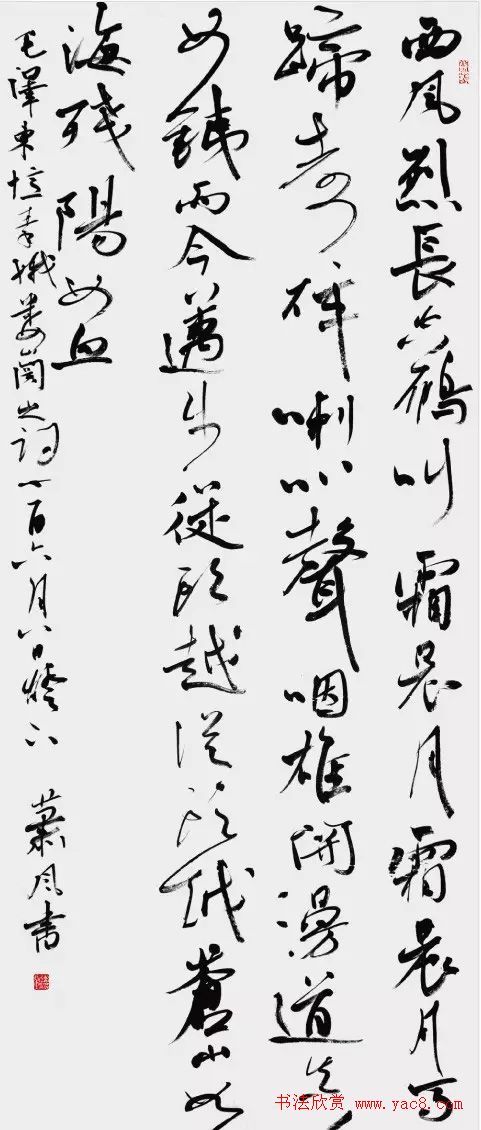 西风烈長空鴈叫霜晨月霜晨月马
蹄声碎喇叭聲咽雄関漫道真
如鐵而今邁步從頭越從頭越蒼山如
海残陽如血
毛澤東憶秦娥娄山関之詞丁酉六月八日燈下 蕭风書
书法欣赏 www.yac8.com